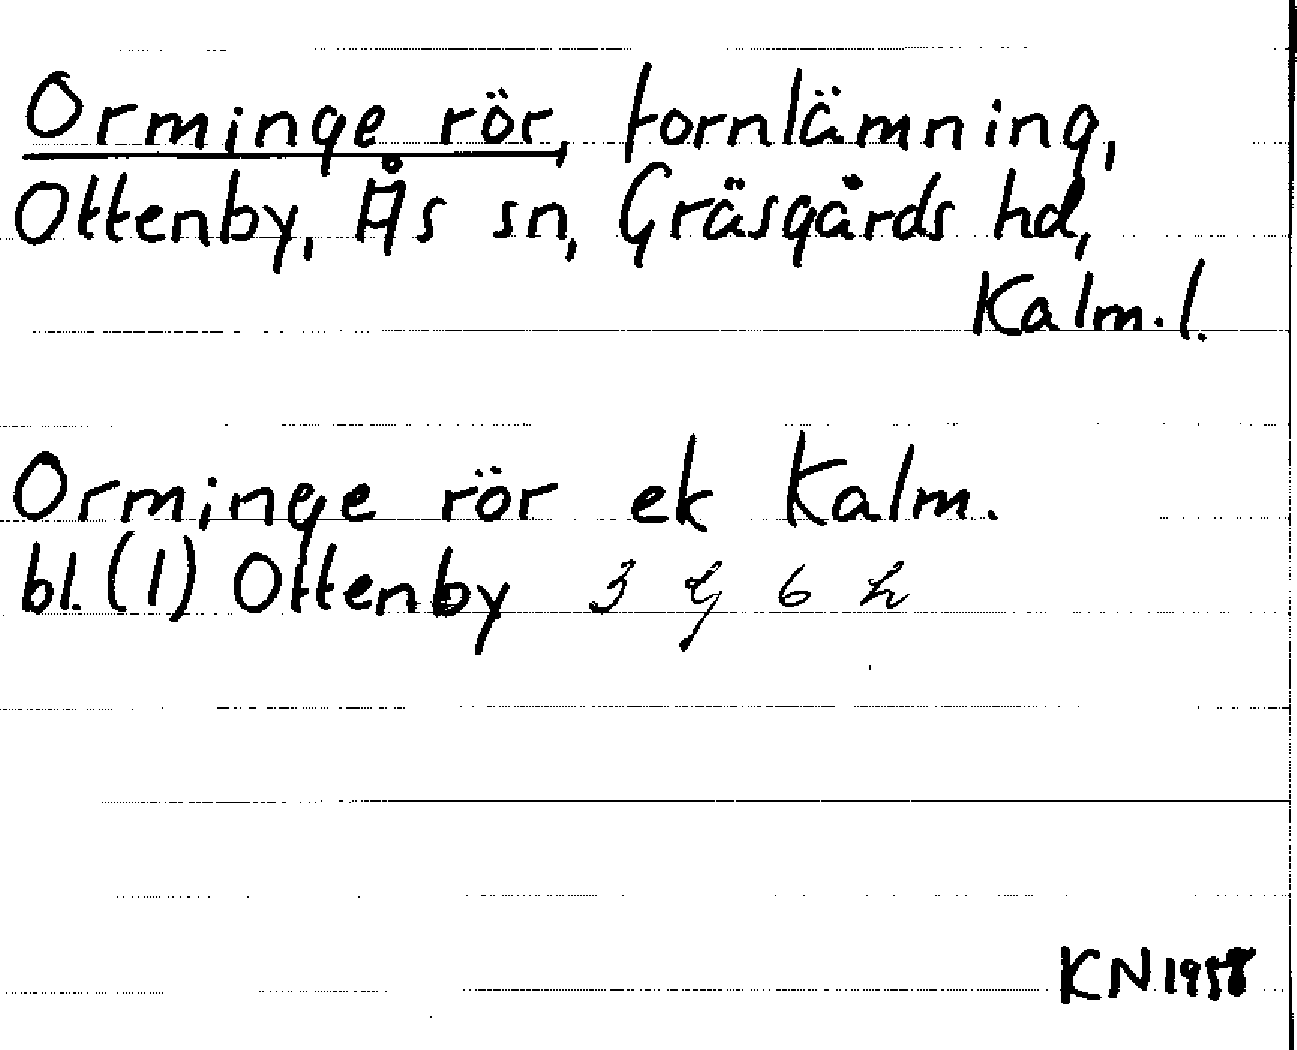 Orminge rör, fornlämning,
Ottenby, Ås sn, Gräsgårds hd,
Kalm. l.
Orminge rör ek Kalm.
bl. (1) Ottenby 3 g 6 h
KN 1958